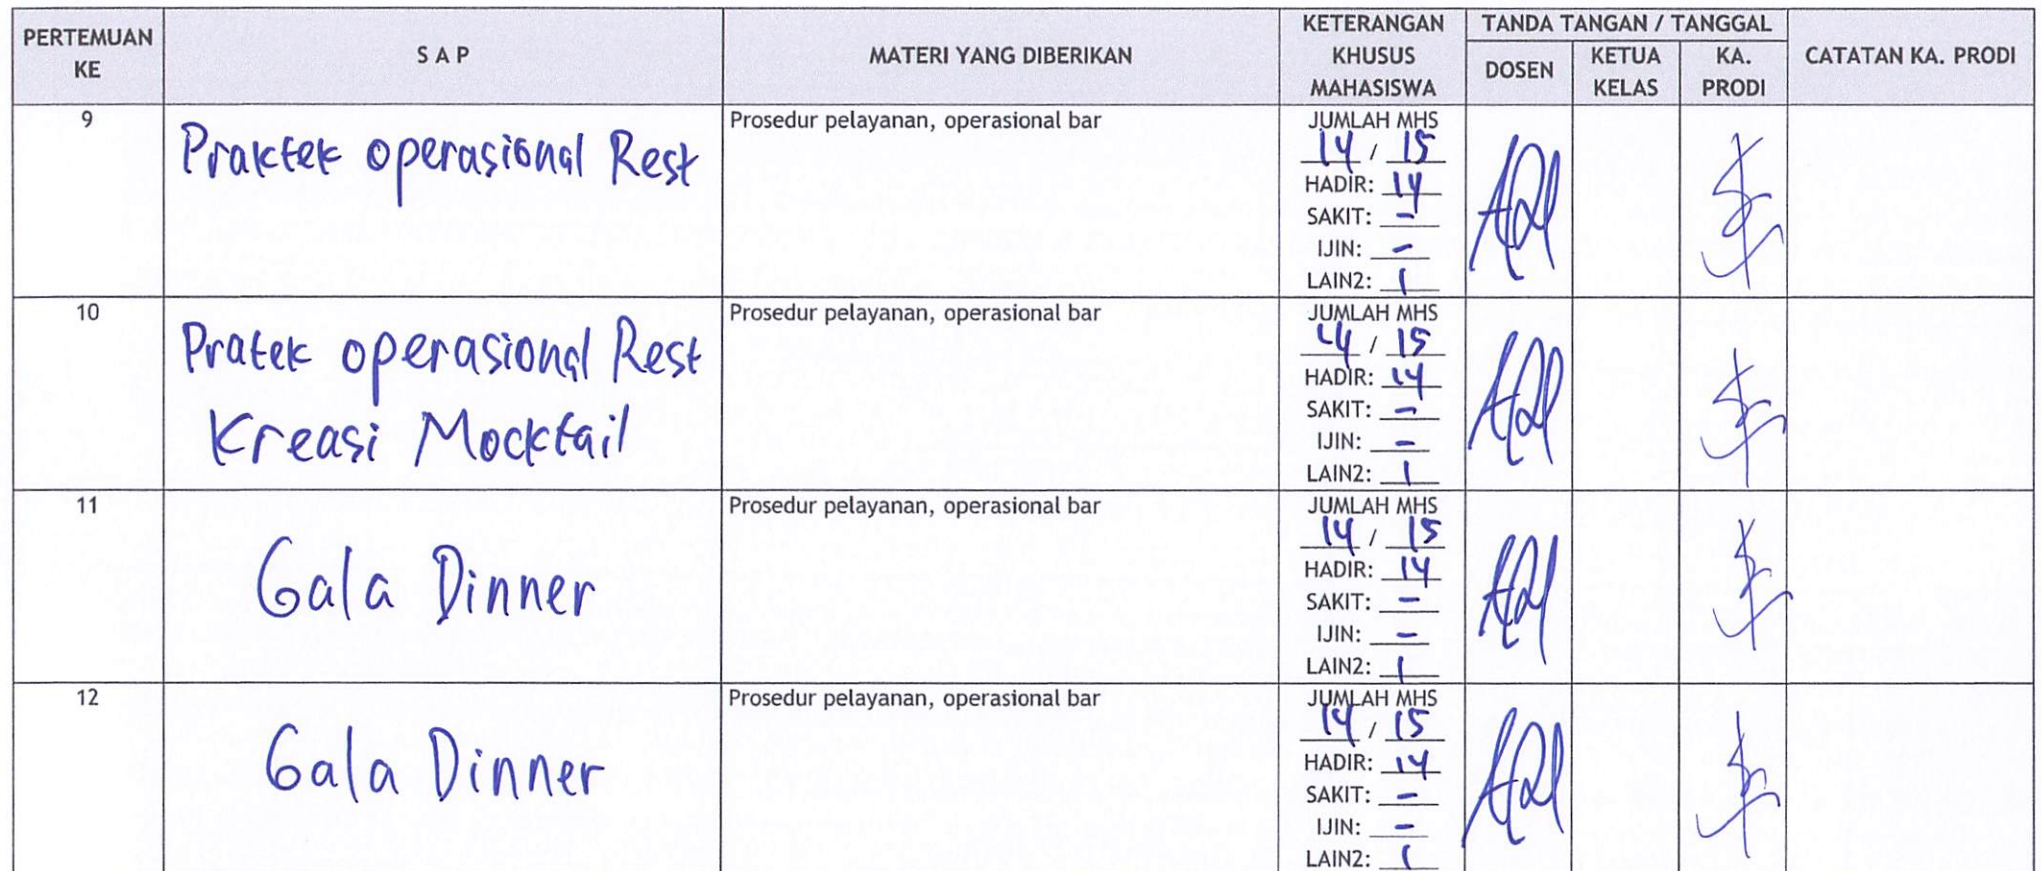 PERTEMUAN KE
S A P
MATERI YANG DIBERIKAN
KETERANGAN KHUSUS MAHASISWA
TANDA TANGAN / TANGGAL
DOSEN
KETUA KELAS
KA. PRODI
CATATAN KA. PRODI
9
Praktek operasional Rest
Prosedur pelayanan, operasional bar
JUMLAH MHS
14 / 15
HADIR: 14
SAKIT: -
IJIN: -
LAIN2: 1
10
Pratek operasional Rest
Kreasi Mocktail
Prosedur pelayanan, operasional bar
JUMLAH MHS
14 / 15
HADIR: 14
SAKIT: -
IJIN: -
LAIN2: 1
11
Gala Dinner
Prosedur pelayanan, operasional bar
JUMLAH MHS
14 / 15
HADIR: 14
SAKIT: -
IJIN: -
LAIN2: 1
12
Gala Dinner
Prosedur pelayanan, operasional bar
JUMLAH MHS
14 / 15
HADIR: 14
SAKIT: -
IJIN: -
LAIN2: 1